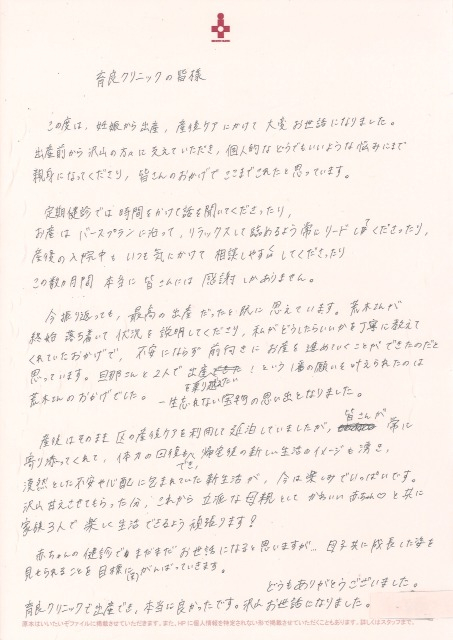 育良クリニックの皆様
この度は、妊娠から出産、産後ケアにかけて大変お世話になりました。
出産前から沢山の方々に支えていただき、個人的などうでもいいような悩みにまで
親身になってくださり、皆さんのおかげでここまでこれたと思っています。
定期健診では時間をかけて話を聞いてくださったり、
お産はバースプランに沿って、リラックスして臨めるよう常にリードして下さったり、
産後の入院中もいつも気にかけて相談しやすくしてくださったり
この数ヶ月間本当に皆さんには感謝しかありません。
今振り返っても、最高の出産だったと既に思えています。荒木さんが
終始落ち着いて状況を説明してくださり、私がどうしたらいいかを丁寧に教えて
くれていたおかげで、不安にならず前向きにお産を進めていくことができたのだと
思っています。旦那さんと2人で出産を乗り越えたい!という1番の願いを叶えられたのは
荒木さんのおかげでした。一生忘れない宝物の思い出となりました。
産後はそのまま区の産後ケアを利用して延泊していましたが、皆さんが常に
寄り添ってくれて、体力の回復もでき、帰宅後の新しい生活のイメージも湧き、
漠然とした不安や心配に包まれていた新生活が、今は楽しみでいっぱいです。
沢山甘えさせてもらった分、これから立派な母親としてかわいい赤ちゃん♡と共に
家族3人で楽しく生活できるよう頑張ります!
赤ちゃんの健診でもまだまだお世話になると思いますが… 母子共に成長した姿を
見せられることを目標に(笑)がんばっていきます。
どうもありがとうございました。
育良クリニックで出産でき、本当に良かったです。沢山お世話になりました。
原本はいいたいぞファイルに掲載させていただきます。また、HPに個人情報を特定されない形で掲載させていただくこともあります。詳しくはスタッフまで。